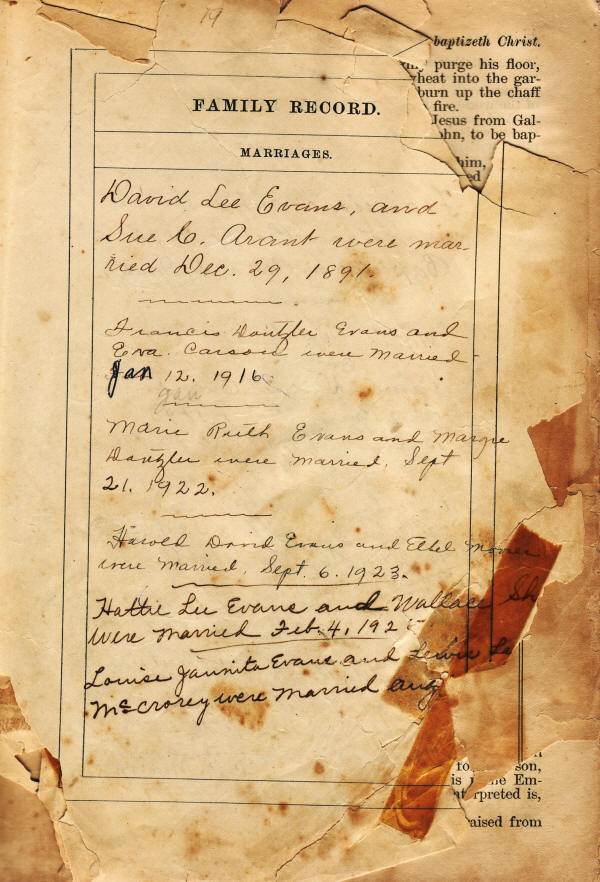 19
baptizeth Christ.
purge his floor,
wheat into the gar-
burn up the chaff
fire.
Jesus from Gal-
John, to be bap-
him,
FAMILY RECORD.
MARRIAGES.
David Lee Evans, and
Sue C. Arant were mar-
ried Dec. 29, 1891.
Francis Dantzler Evans and
Eva. Carson were Married
Jan 12. 1916
Jan
Marie Ruth Evans and
Dantzler were Married. Sept
21. 1922.
Harold David Evans and Ethel
were Married. Sept. 6. 1923.
Hattie Lee Evans and Wallace Sh
Were Married Feb. 4, 192
Louise Juanita Evans and Lewis Le
McCrorey were Married Aug
son,
is the Em-
interpreted is,
raised from